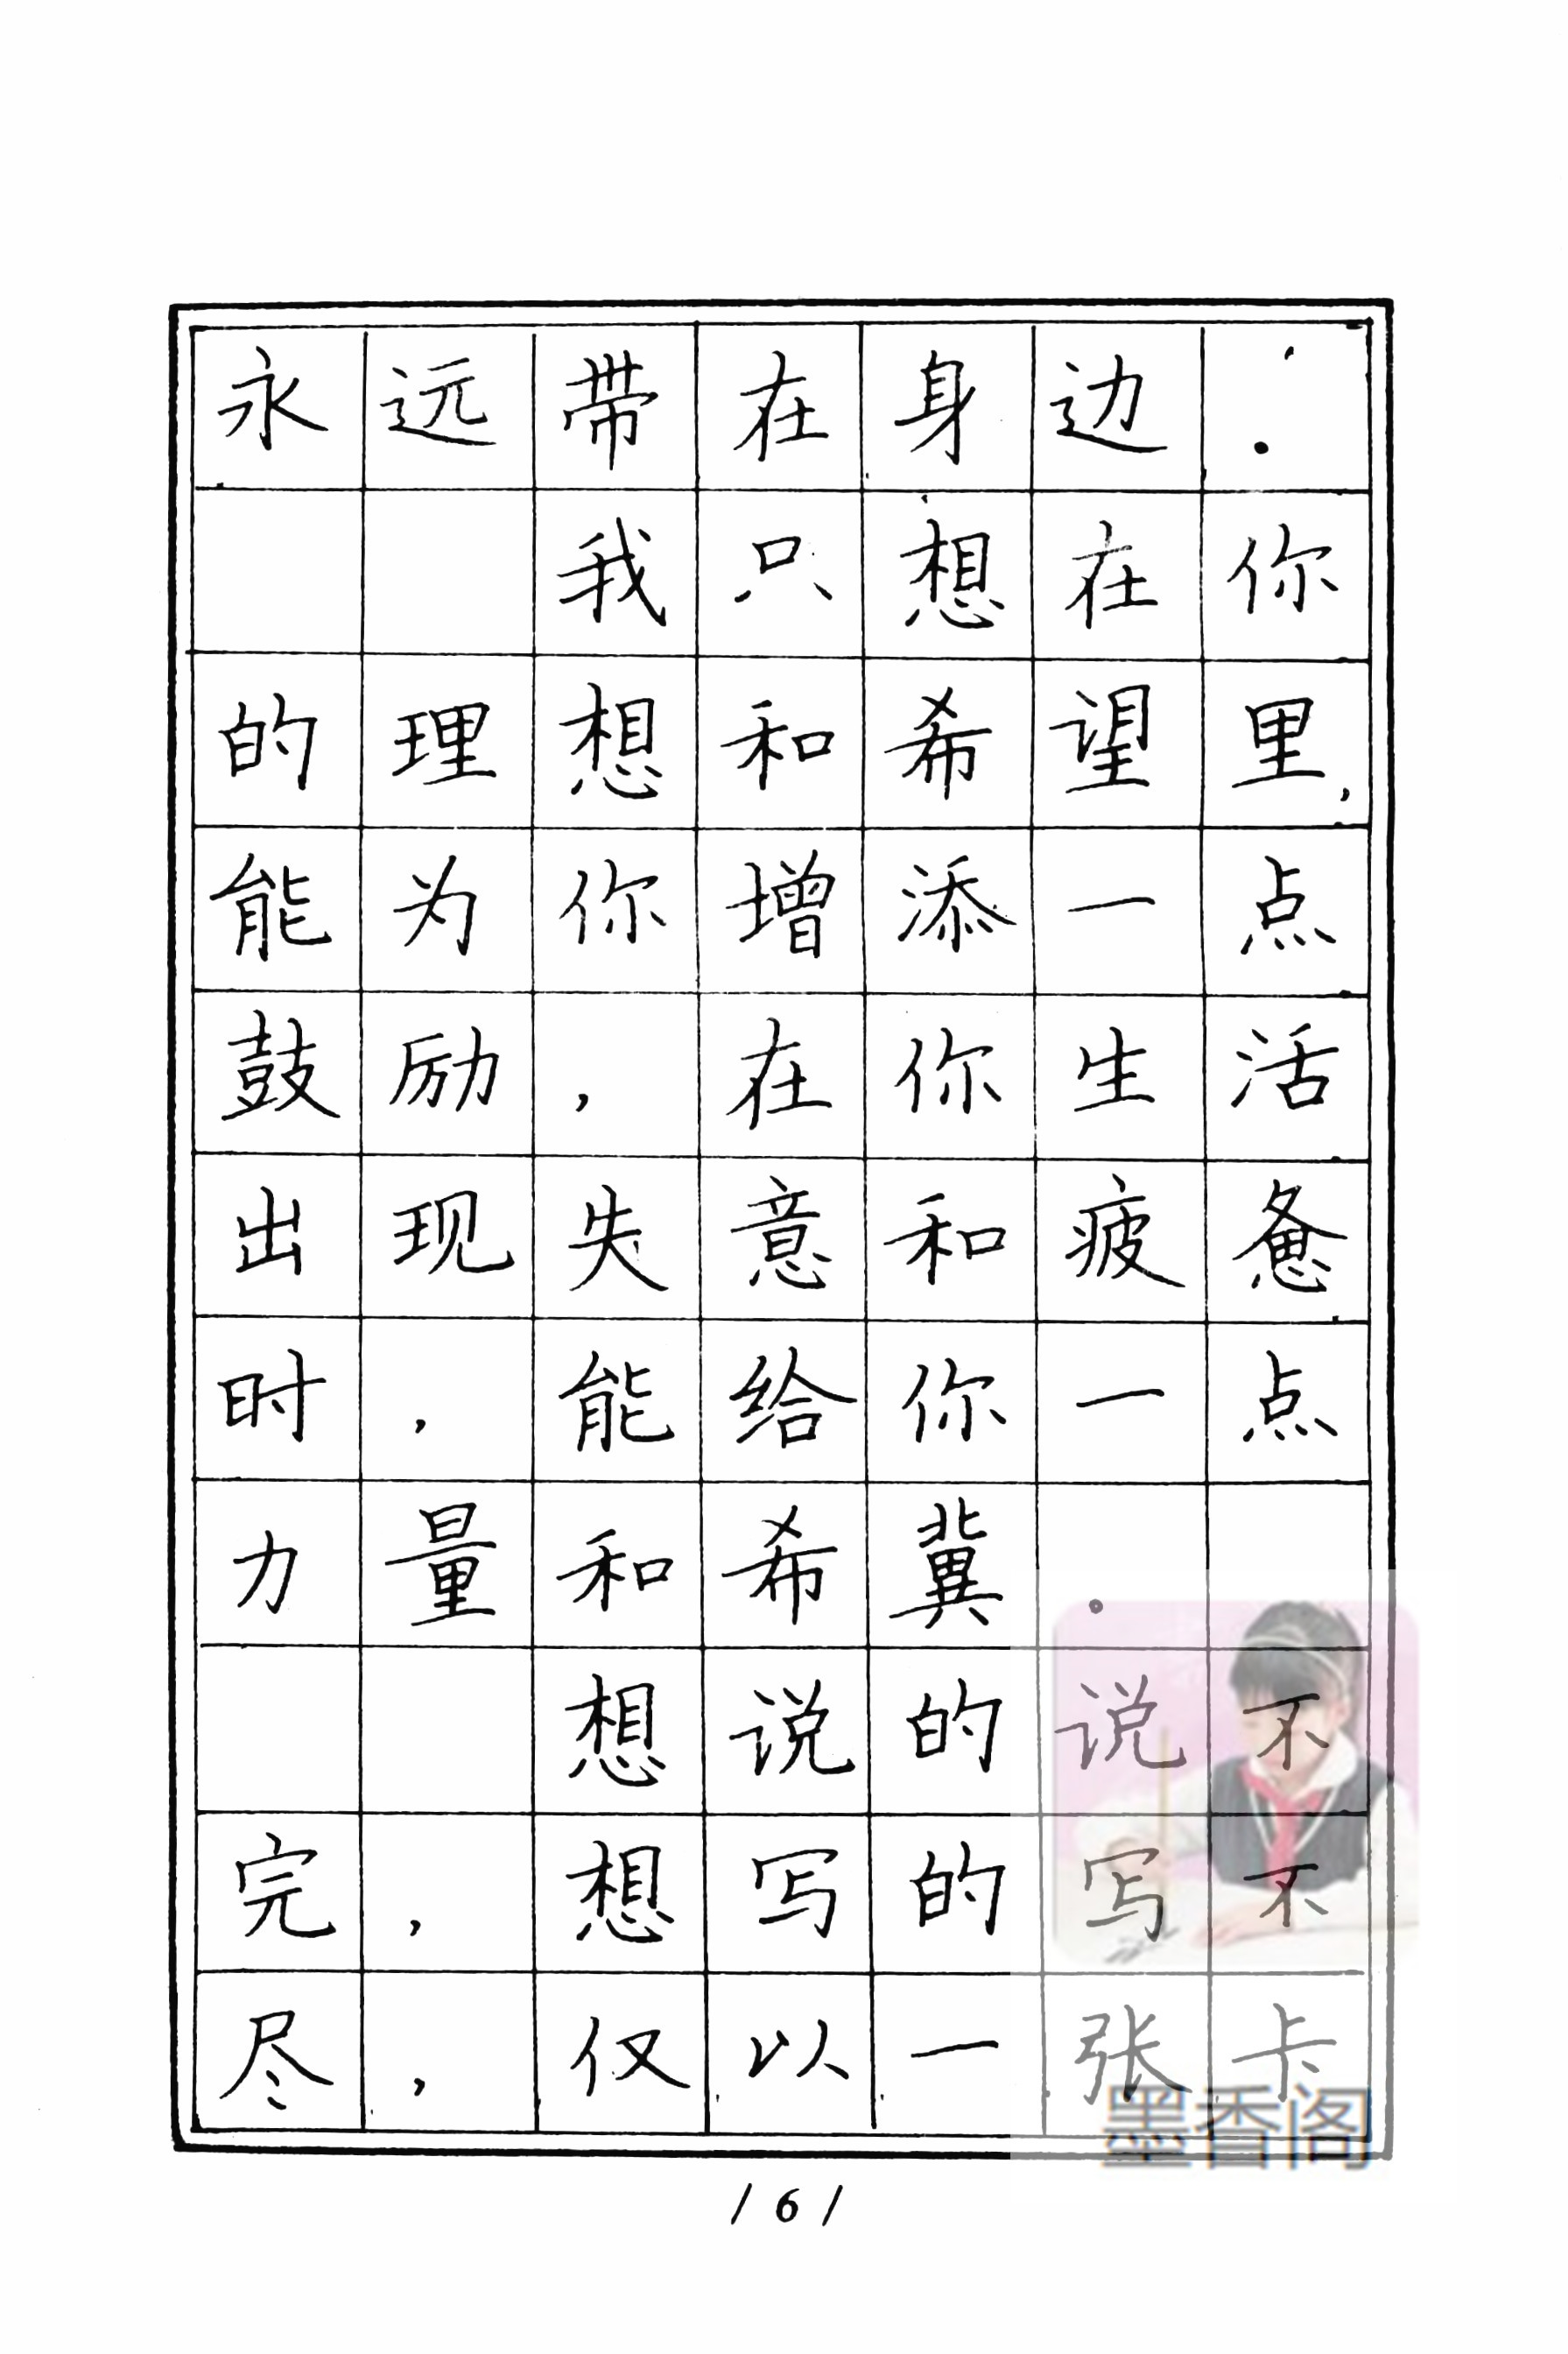 永远带在身边.
我只想在你
的理想和希望里,
能为你增添一点
鼓励,在你生活
出现失意和疲惫
时,能给你一点
力量和希冀。
想说的说不
完,想写的写不
尽,仅以一张卡
墨香阁
/6/